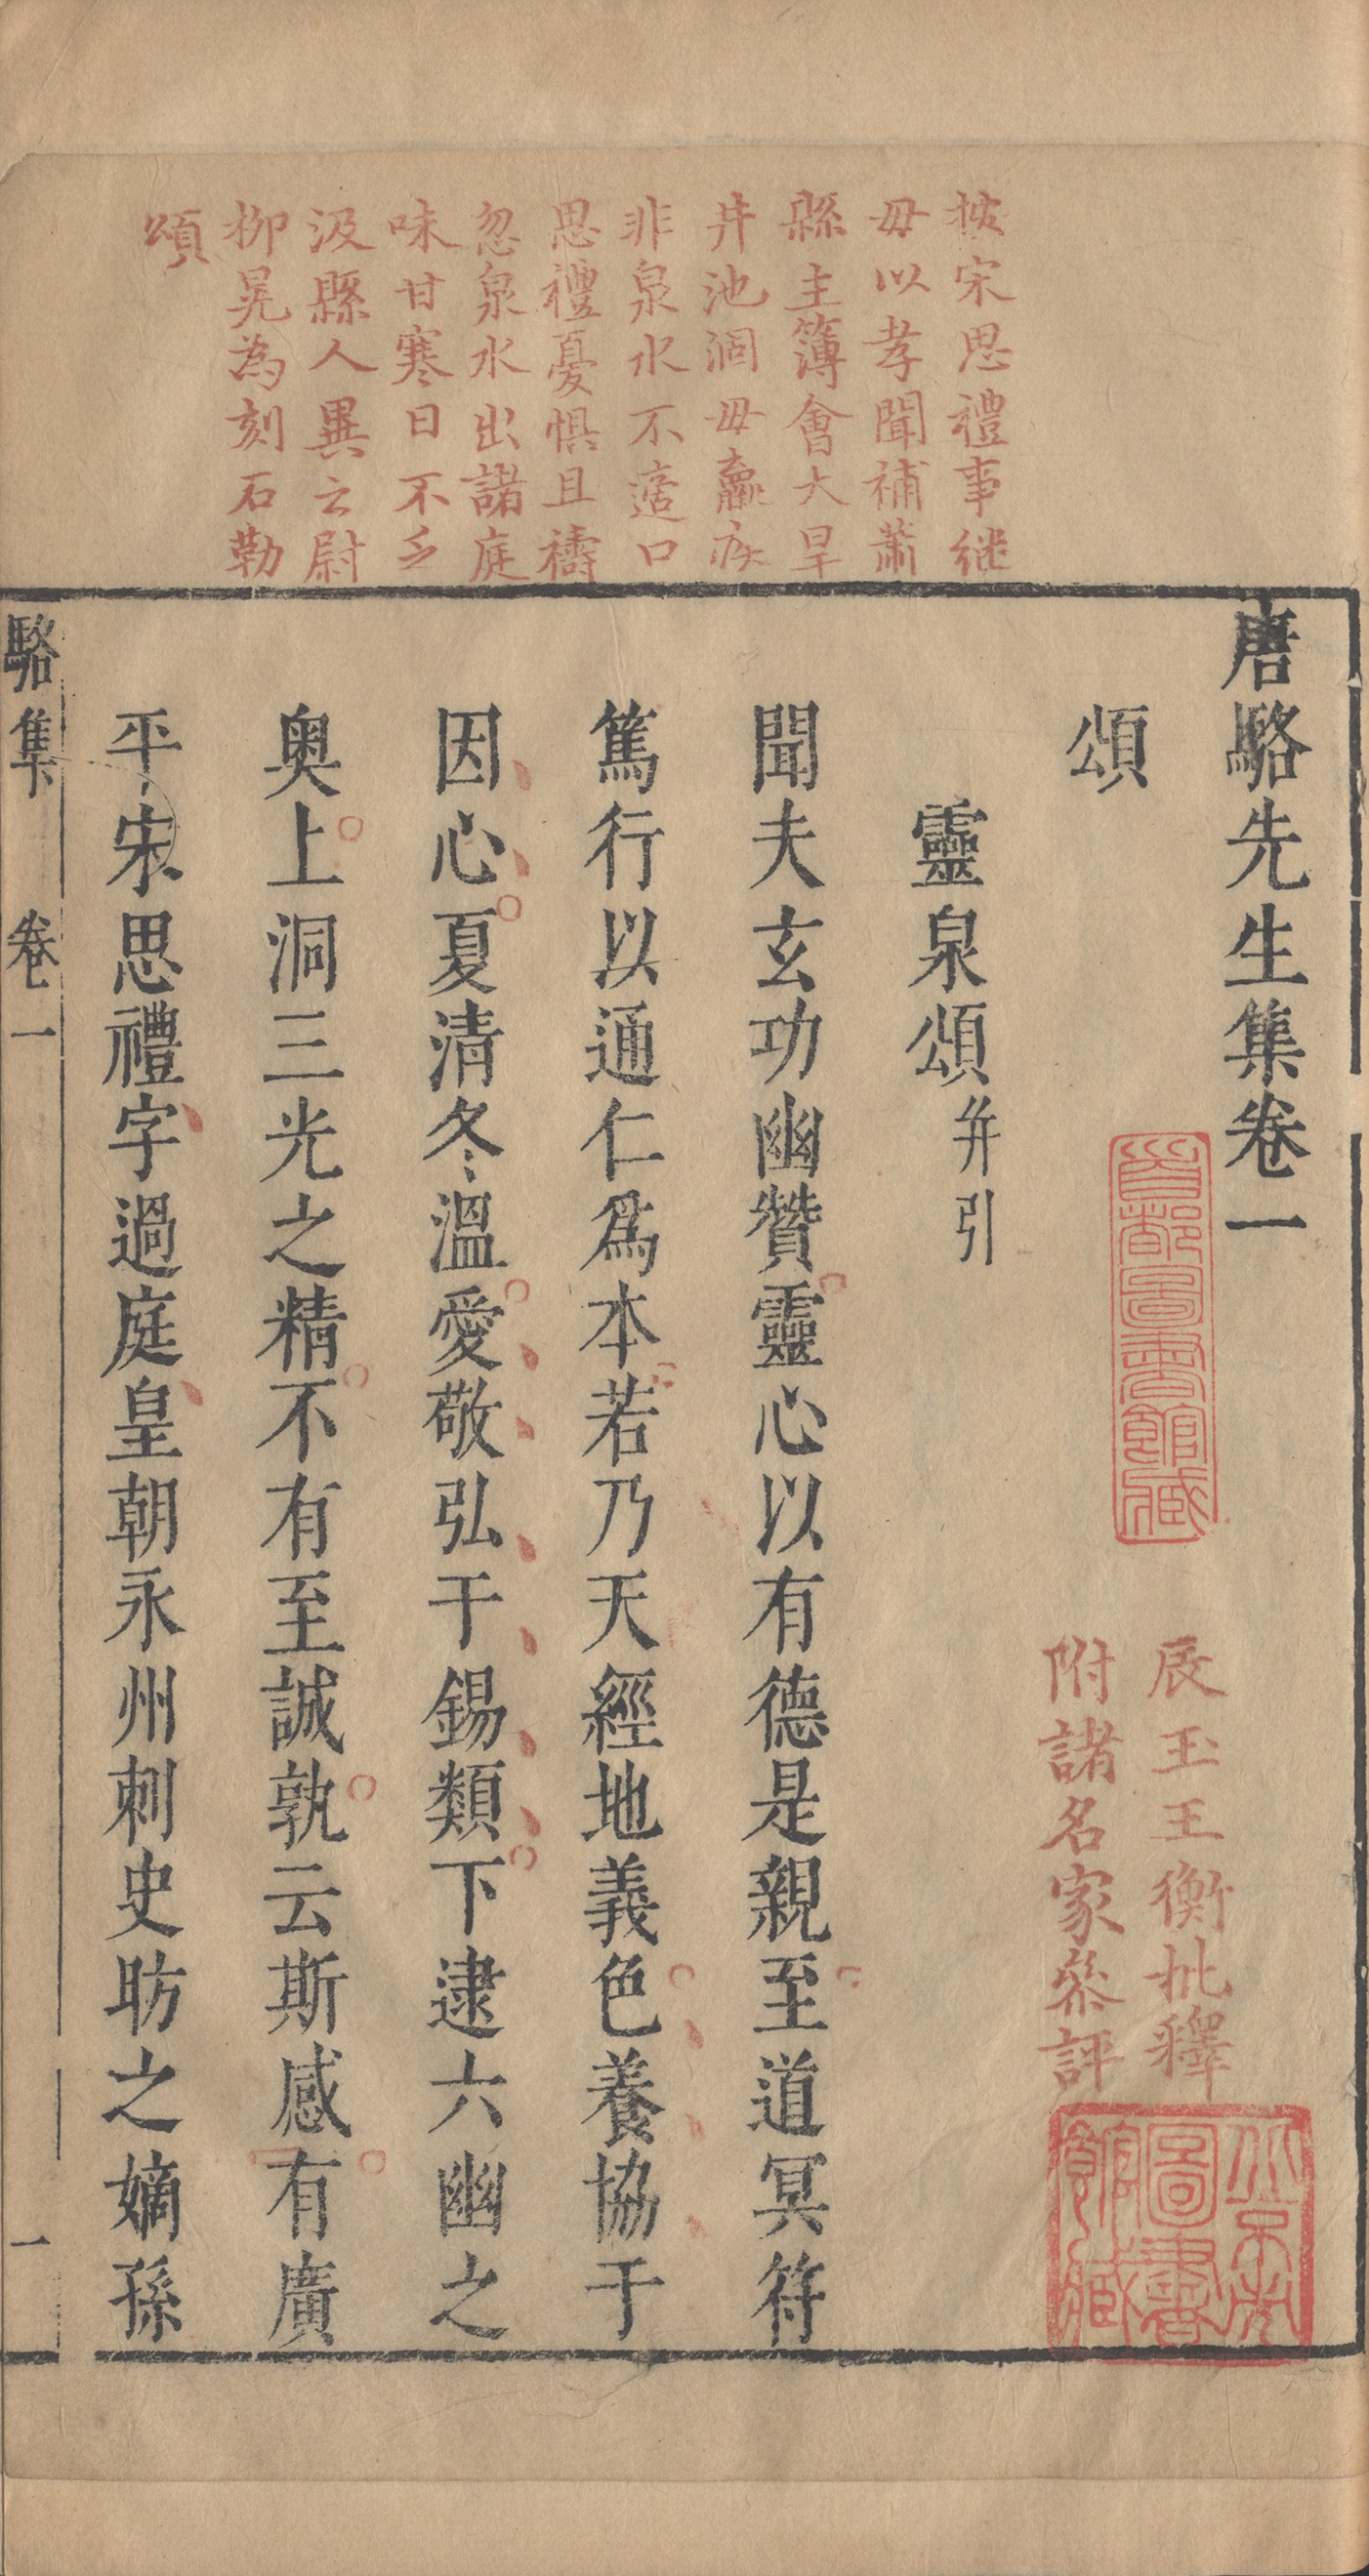 按宋思禮事繼
母以孝聞補蕭
縣主簿會大旱
井池涸母羸疾
非泉水不適口
思禮憂懼且禱
忽泉水出諸庭
味甘寒日不乏
汲縣人異之尉
柳晃為刻石勒
頌
唐駱先生集卷一
辰玉王衡批釋
附諸名家叅評
頌
靈泉頌并引
聞夫玄功幽贊靈心以有德是親至道冥符
篤行以通仁爲本若乃天經地義色養協于
因心夏清冬溫愛敬弘于錫類下逮六幽之
奥上洞三光之精不有至誠孰云斯感有廣
平宋思禮字過庭皇朝永州刺史昉之嫡孫
駱集 卷一 一
首都圖書館藏
北京市
圖書
館藏